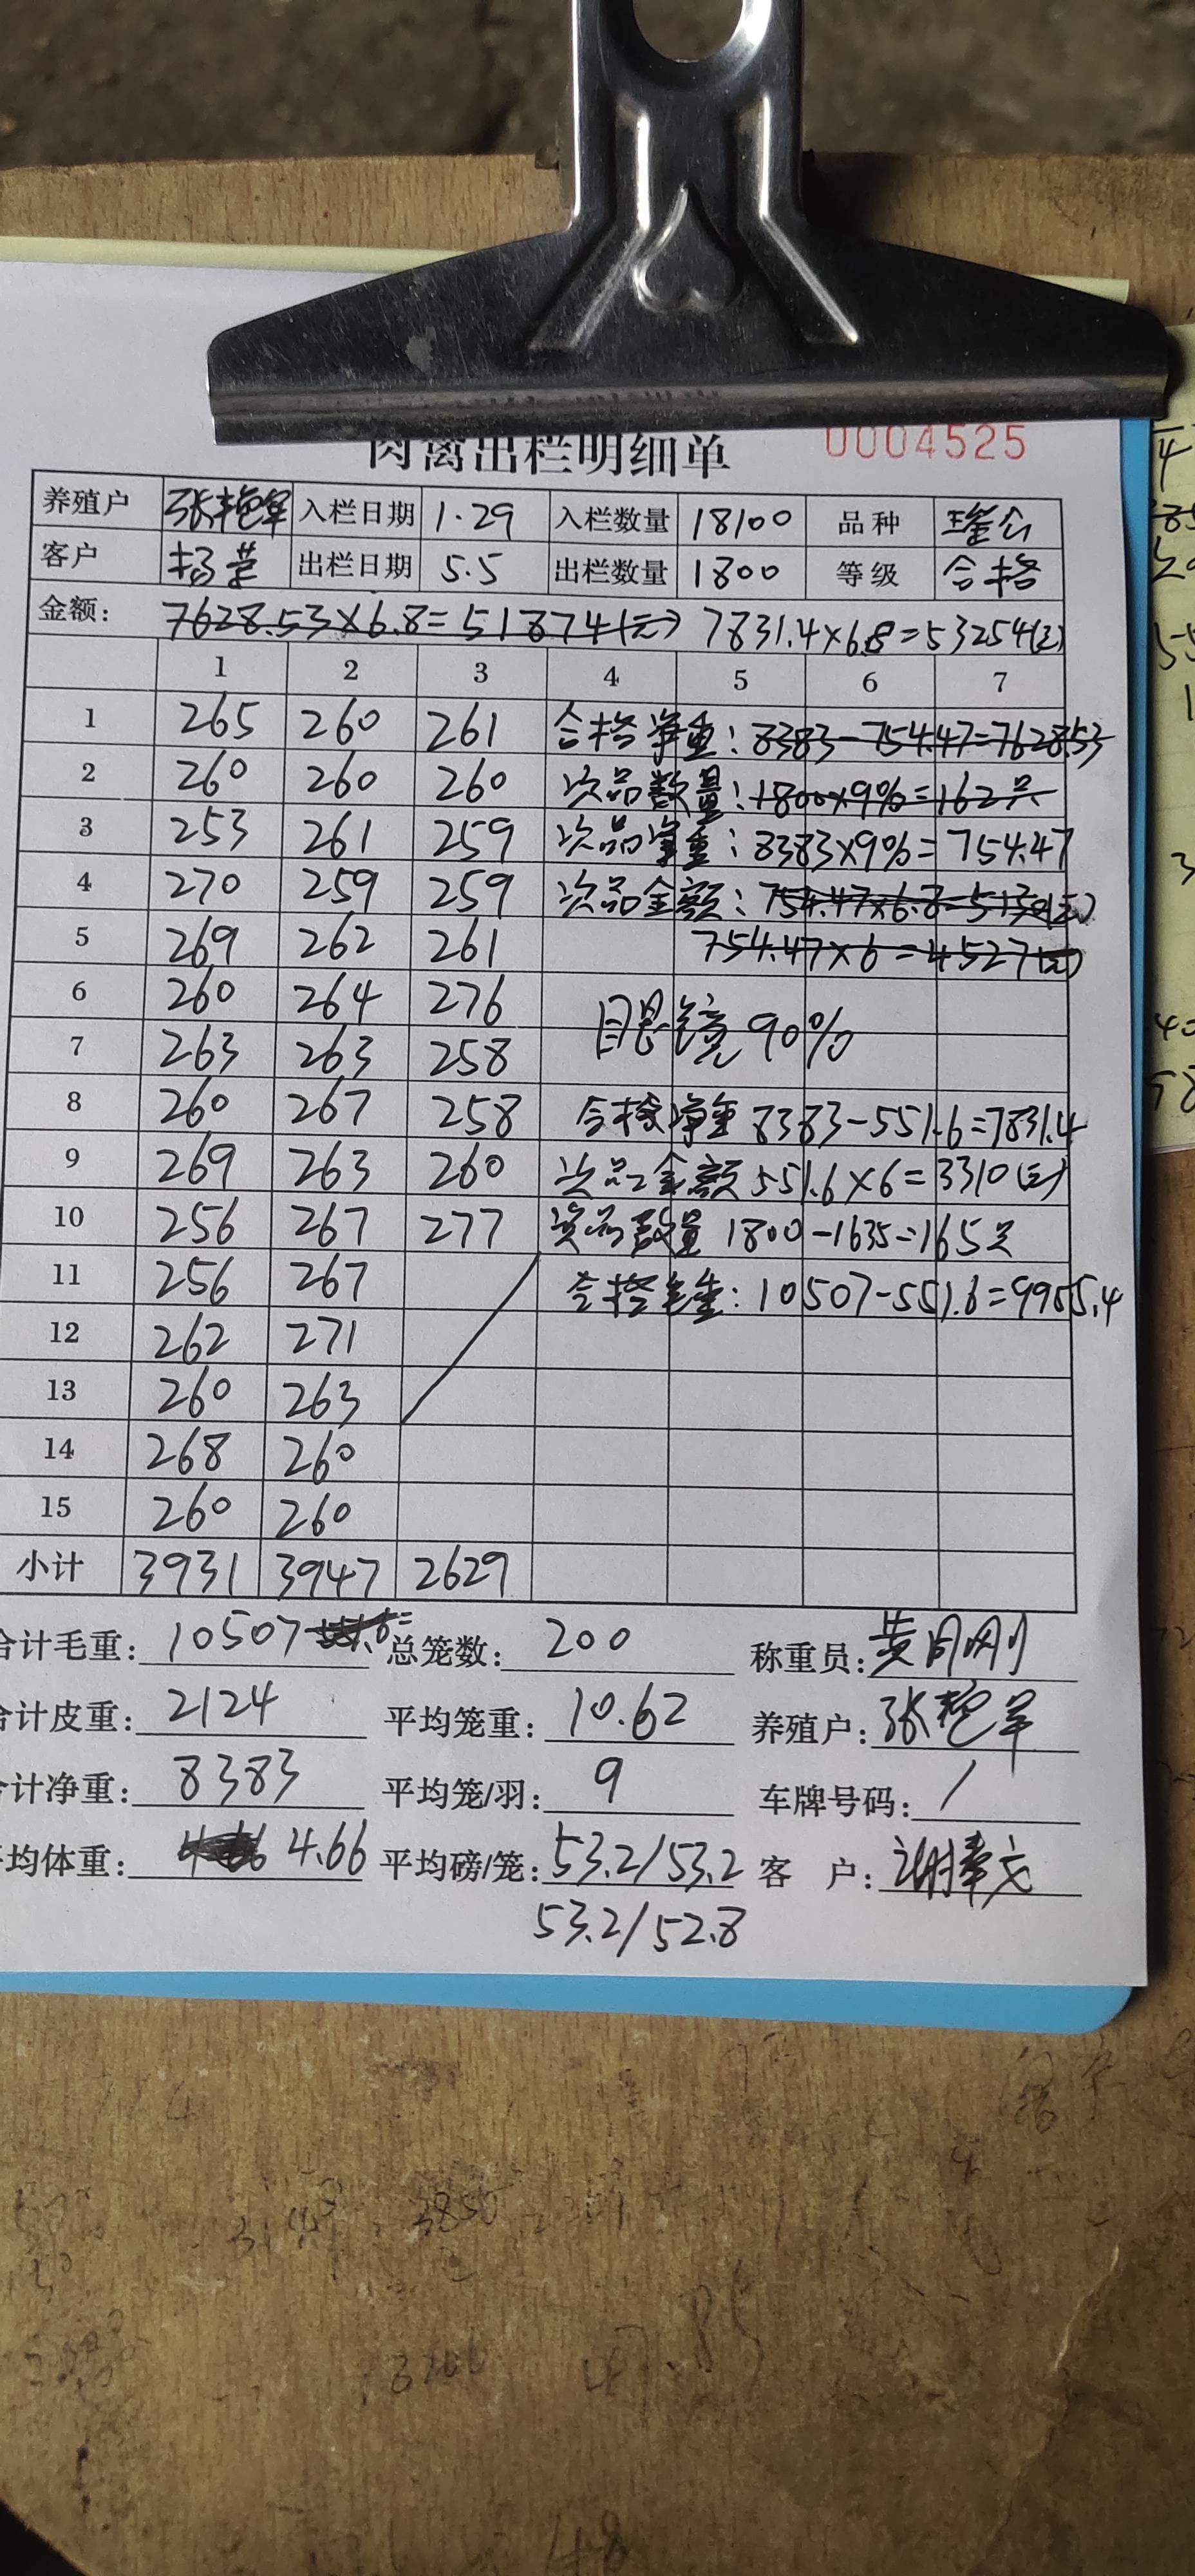 肉禽出栏明细单 0004525
养殖户 张艳军 入栏日期 1.29 入栏数量 18100 品种 瑶公
客户 杨芝 出栏日期 5.5 出栏数量 1800 等级 合格
金额: 7628.53×6.8=51874(元) 7831.4×6.8=53254(元)
1 2 3 4 5 6 7
1 265 260 261 合格净重:8383-754.47=7628.53
2 260 260 260 次品数量:1800×9%=162只
3 253 261 259 次品净重:8383×9%=754.47
4 270 259 259 次品金额:754.47×6.8=5130(元)
5 269 262 261 754.47×6=4527(元)
6 260 264 276
眼镜90%
7 263 263 258
8 260 267 258 合格净重 8383-551.6=7831.4
9 269 263 260 次品金额 551.6×6=3310(元)
10 256 267 277 次品数量 1800-1635=165只
11 256 267 合格毛重:10507-551.6=9955.4
12 262 271
13 260 263
14 268 260
15 260 260
小计 3931 3947 2629
合计毛重: 10507 总笼数: 200 称重员: 黄月刚
合计皮重: 2124 平均笼重: 10.62 养殖户: 张艳军
合计净重: 8383 平均笼/羽: 9 车牌号码: /
平均体重: 4.66 平均磅/笼: 53.2/53.2 客 户:
53.2/52.8